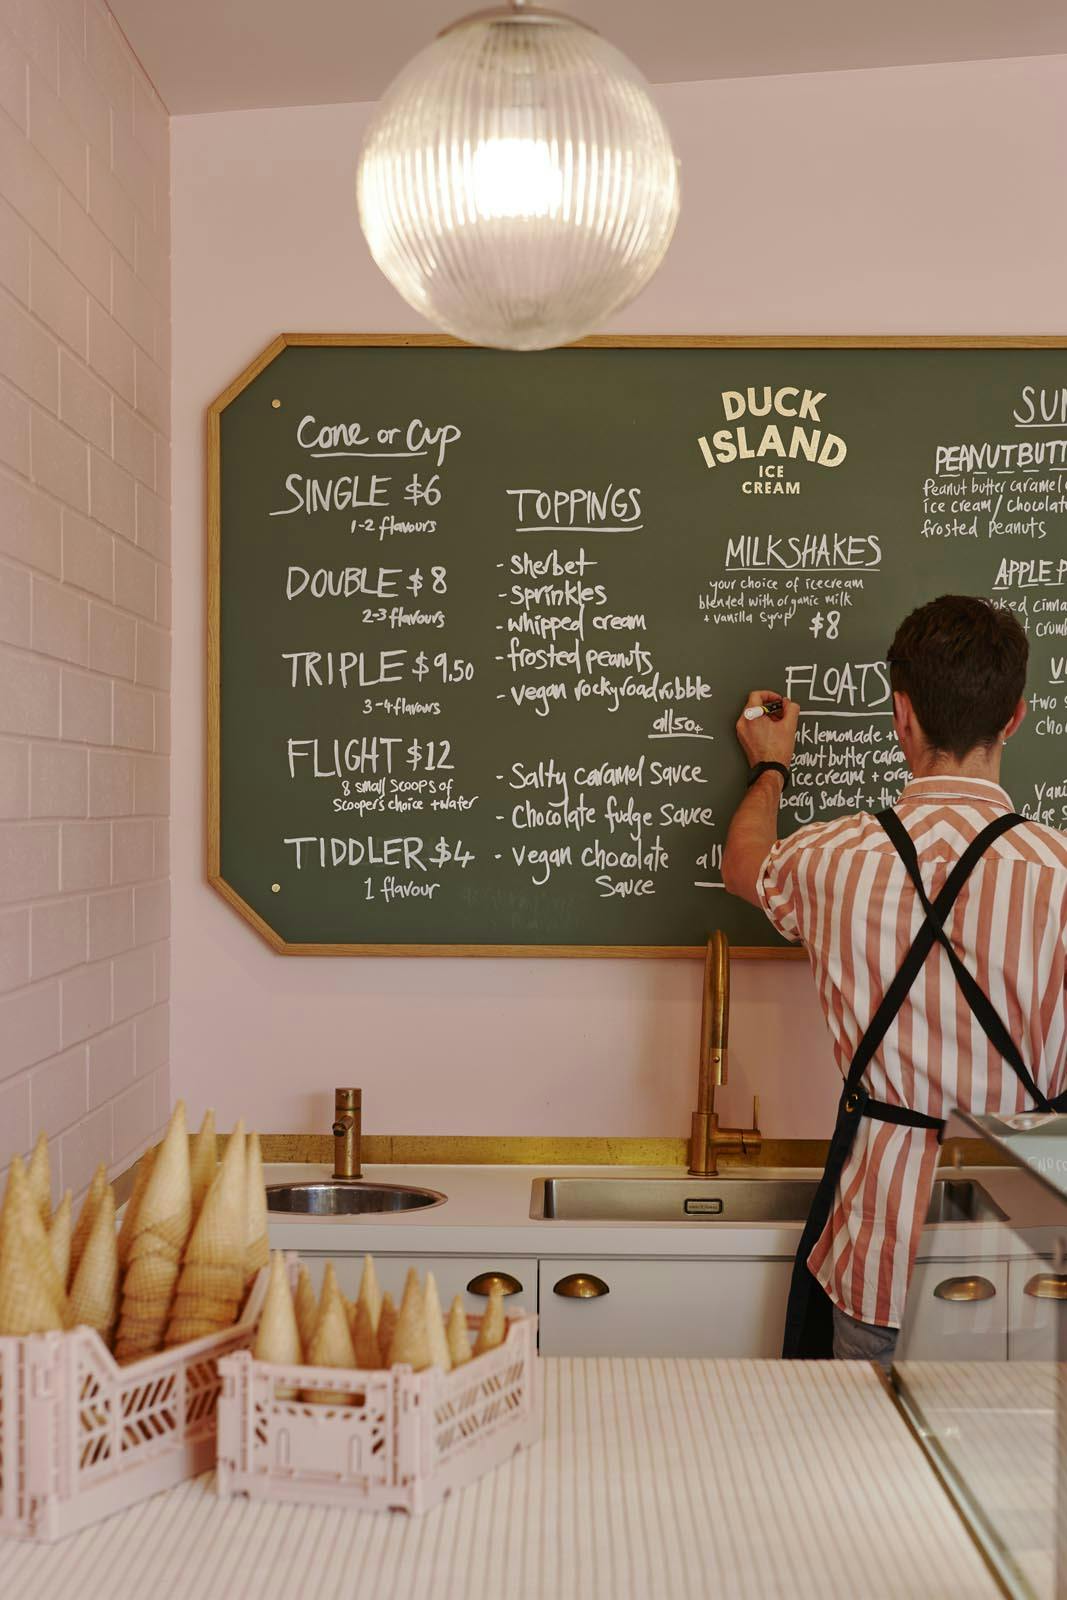 Cone or Cup
SINGLE $6
1-2 flavours
DOUBLE $8
2-3 flavours
TRIPLE $9.50
3-4 flavours
FLIGHT $12
8 small scoops of
scoopers choice + wafer
TIDDLER $4
1 flavour
TOPPINGS
- sherbet
- sprinkles
- whipped cream
- frosted peanuts
- vegan rockyroad rubble
all 50c
- Salty caramel Sauce
- Chocolate fudge Sauce
- Vegan chocolate
Sauce
all
DUCK
ISLAND
ICE
CREAM
MILKSHAKES
your choice of icecream
blended with organic milk
+ vanilla syrup $8
FLOATS
lemonade +
peanut butter
ice cream +
Sorbet +
PEANUT
Peanut butter caramel
ice cream /
frosted peanuts
APPLE
+
two